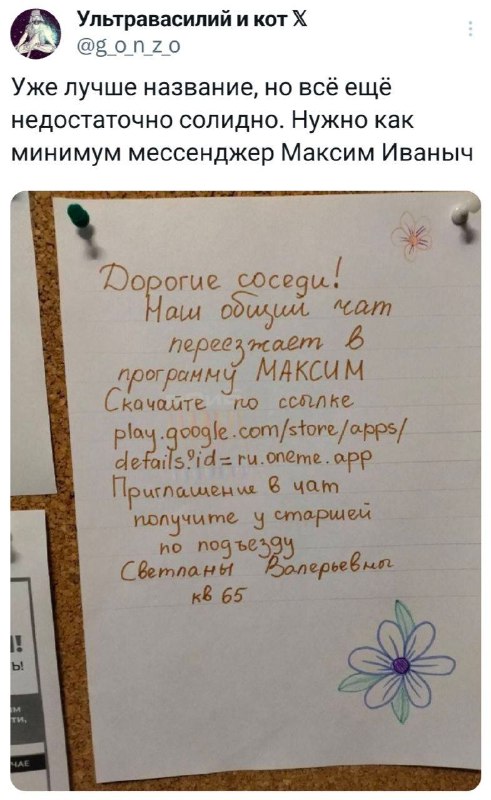 Ультравасилий и кот 𝕏
@g_o_n_z_o
Уже лучше название, но всё ещё
недостаточно солидно. Нужно как
минимум мессенджер Максим Иваныч
Дорогие соседи!
Наш общий чат
переезжает в
программу МАКСИМ
Скачайте по ссылке
play.google.com/store/apps/
details?id=ru.oneme.app
Приглашение в чат
получите у старшей
по подъезду
Светланы Валерьевны
кв 65
!
Ь!
ЧАЕ